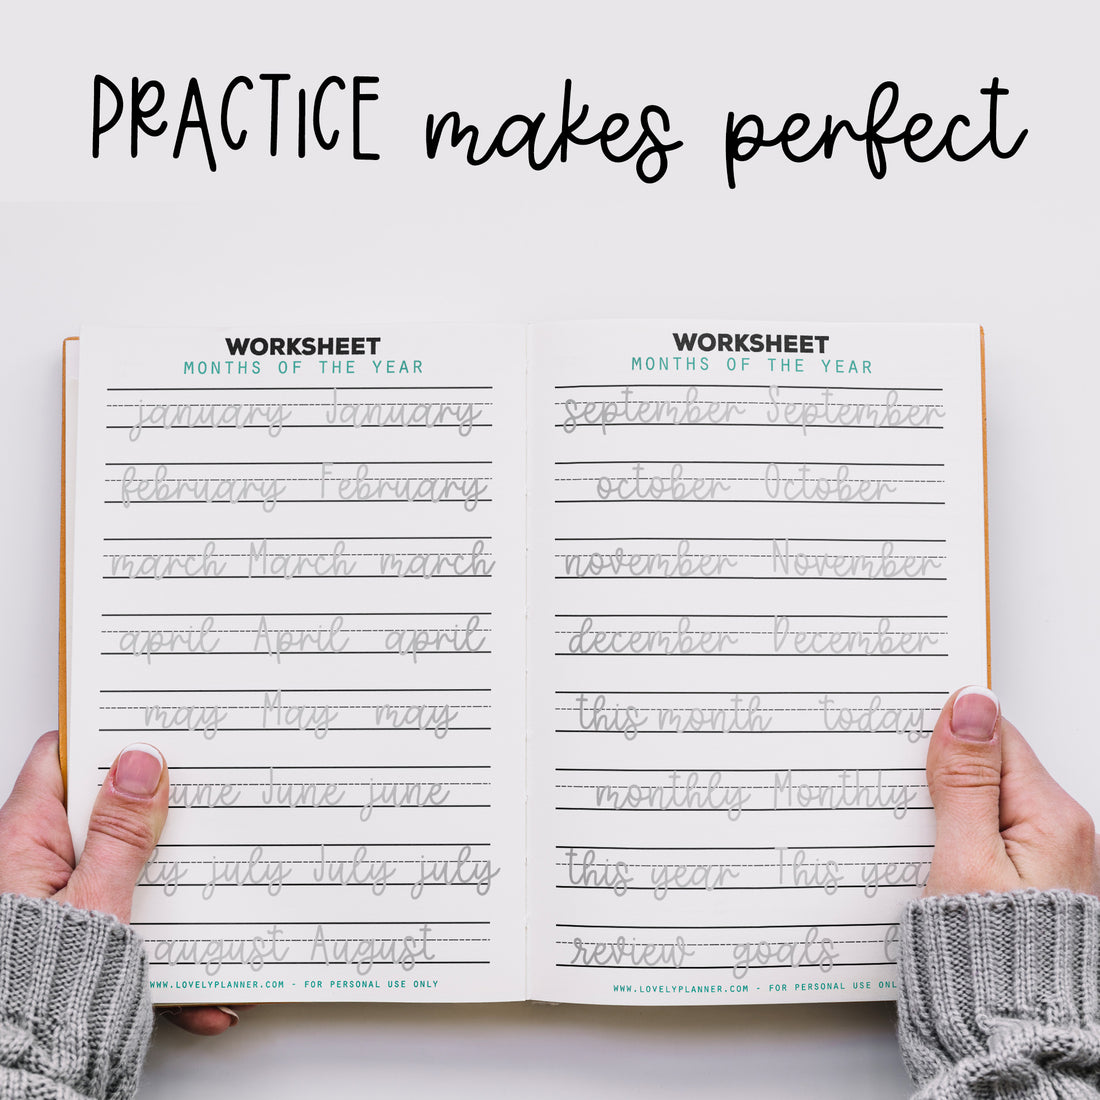 PRACTICE makes perfect
WORKSHEET
MONTHS OF THE YEAR
january January
february February
march March march
april April april
may May may
june June june
july July july
august August
WWW.LOVELYPLANNER.COM - FOR PERSONAL USE ONLY
WORKSHEET
MONTHS OF THE YEAR
september September
october October
november November
december December
this month today
monthly Monthly
this year This year
review goals
WWW.LOVELYPLANNER.COM - FOR PERSONAL USE ONLY